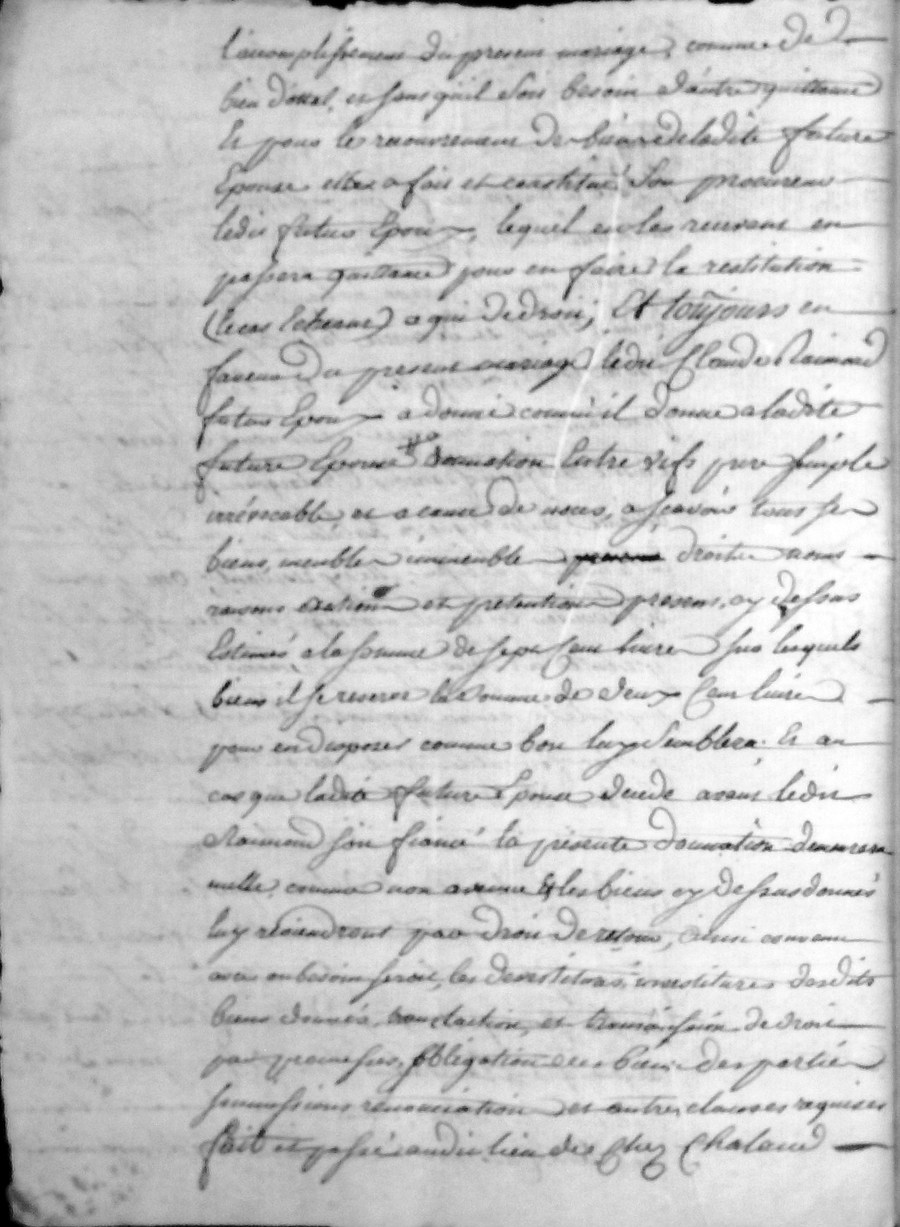 l'accomplissement du present mariage, comme de
bien dottal, et sans qu'il soit besoin d'autre quittance
Et pour le recouvrement des biens de ladite future
Epouse elle a fait et constitué son procureur
ledit futur Epoux, lequel en les recevant en
passera quittance pour en faire la restitution
(le cas Echeant) a qui de droit; Et toujours en
faveur du present mariage ledit Claude Raimond
futur Epoux a donné comme il donne a ladite
future Epouse donnation Entre vifs pure simple
irrévocable et a cause de noces, a scavoir tous ses
biens, meubles immeubles droits noms
raisons actions et pretentions presens, cy dessus
Estimés a la somme de sept Cent livres sur lesquels
biens il se reserve la somme de deux Cent livres
pour en disposer comme bon luy semblera. Et au
cas que ladite future Epouse decede avant ledit
Raimond son fiancé la présente donnation demeurera
nulle comme non avenue & les biens cy dessus donnés
luy reviendront par droit de retour, ainsi convenu
avec ou besoin seroit, les devestitures, investitures desdits
biens donnés, translation, et transmission de droit
par promesses, obligation des biens des parties
soumissions renonciations et autres clauses requises
fait et passé audit lieu de Chez Chalaud